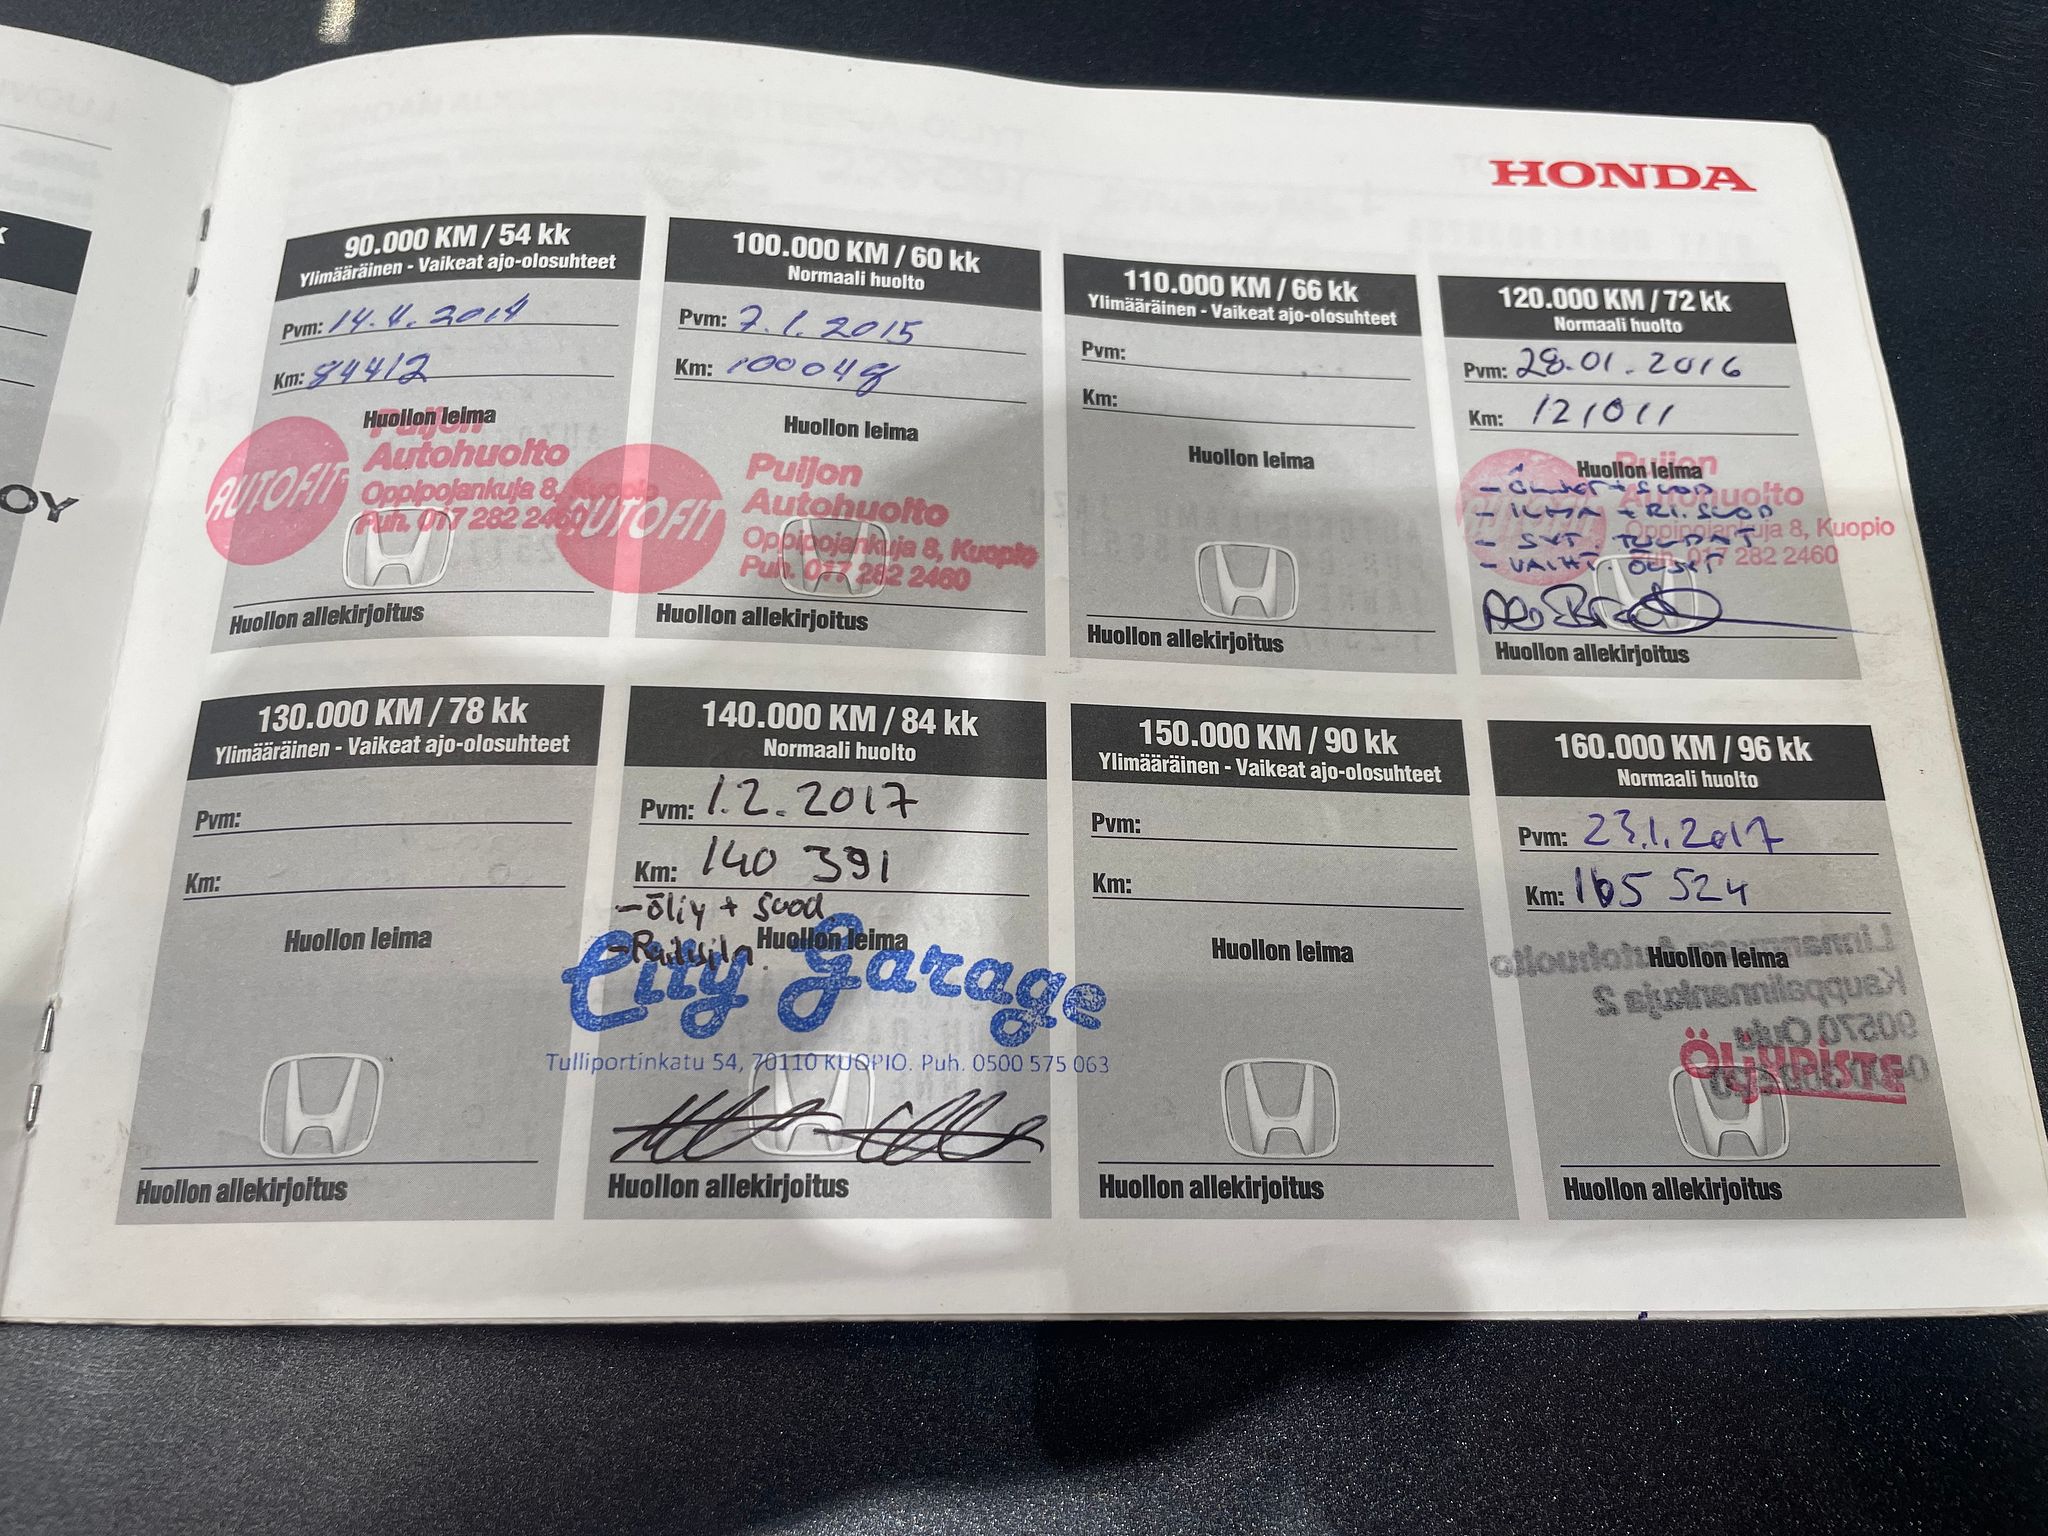 HONDA
90.000 KM / 54 kk
Ylimääräinen - Vaikeat ajo-olosuhteet
Pvm: 14.4.2014
Km: 84412
Huollon leima
AUTOFIT
Puijon
Autohuolto
Oppipojankuja 8, Kuopio
Puh. 017 282 2460
Huollon allekirjoitus
100.000 KM / 60 kk
Normaali huolto
Pvm: 7.1.2015
Km: 100048
Huollon leima
AUTOFIT
Puijon
Autohuolto
Oppipojankuja 8, Kuopio
Puh. 017 282 2460
Huollon allekirjoitus
110.000 KM / 66 kk
Ylimääräinen - Vaikeat ajo-olosuhteet
Pvm:
Km:
Huollon leima
Huollon allekirjoitus
120.000 KM / 72 kk
Normaali huolto
Pvm: 28.01.2016
Km: 121011
Huollon leima
Puijon
Autohuolto
Oppipojankuja 8, Kuopio
Puh. 017 282 2460
Huollon allekirjoitus
130.000 KM / 78 kk
Ylimääräinen - Vaikeat ajo-olosuhteet
Pvm:
Km:
Huollon leima
Huollon allekirjoitus
140.000 KM / 84 kk
Normaali huolto
Pvm: 1.2.2017
Km: 140 391
- öljy + suod.
Huollon leima
City Garage
Tulliportinkatu 54, 70110 KUOPIO. Puh. 0500 575 063
Huollon allekirjoitus
150.000 KM / 90 kk
Ylimääräinen - Vaikeat ajo-olosuhteet
Pvm:
Km:
Huollon leima
Huollon allekirjoitus
160.000 KM / 96 kk
Normaali huolto
Pvm: 23.1.2017
Km: 165 524
Huollon leima
Linnanmaan Autohuolto
Kauppalinnankuja 2
90570 Oulu
ÖLJYPISTE
Huollon allekirjoitus
OY